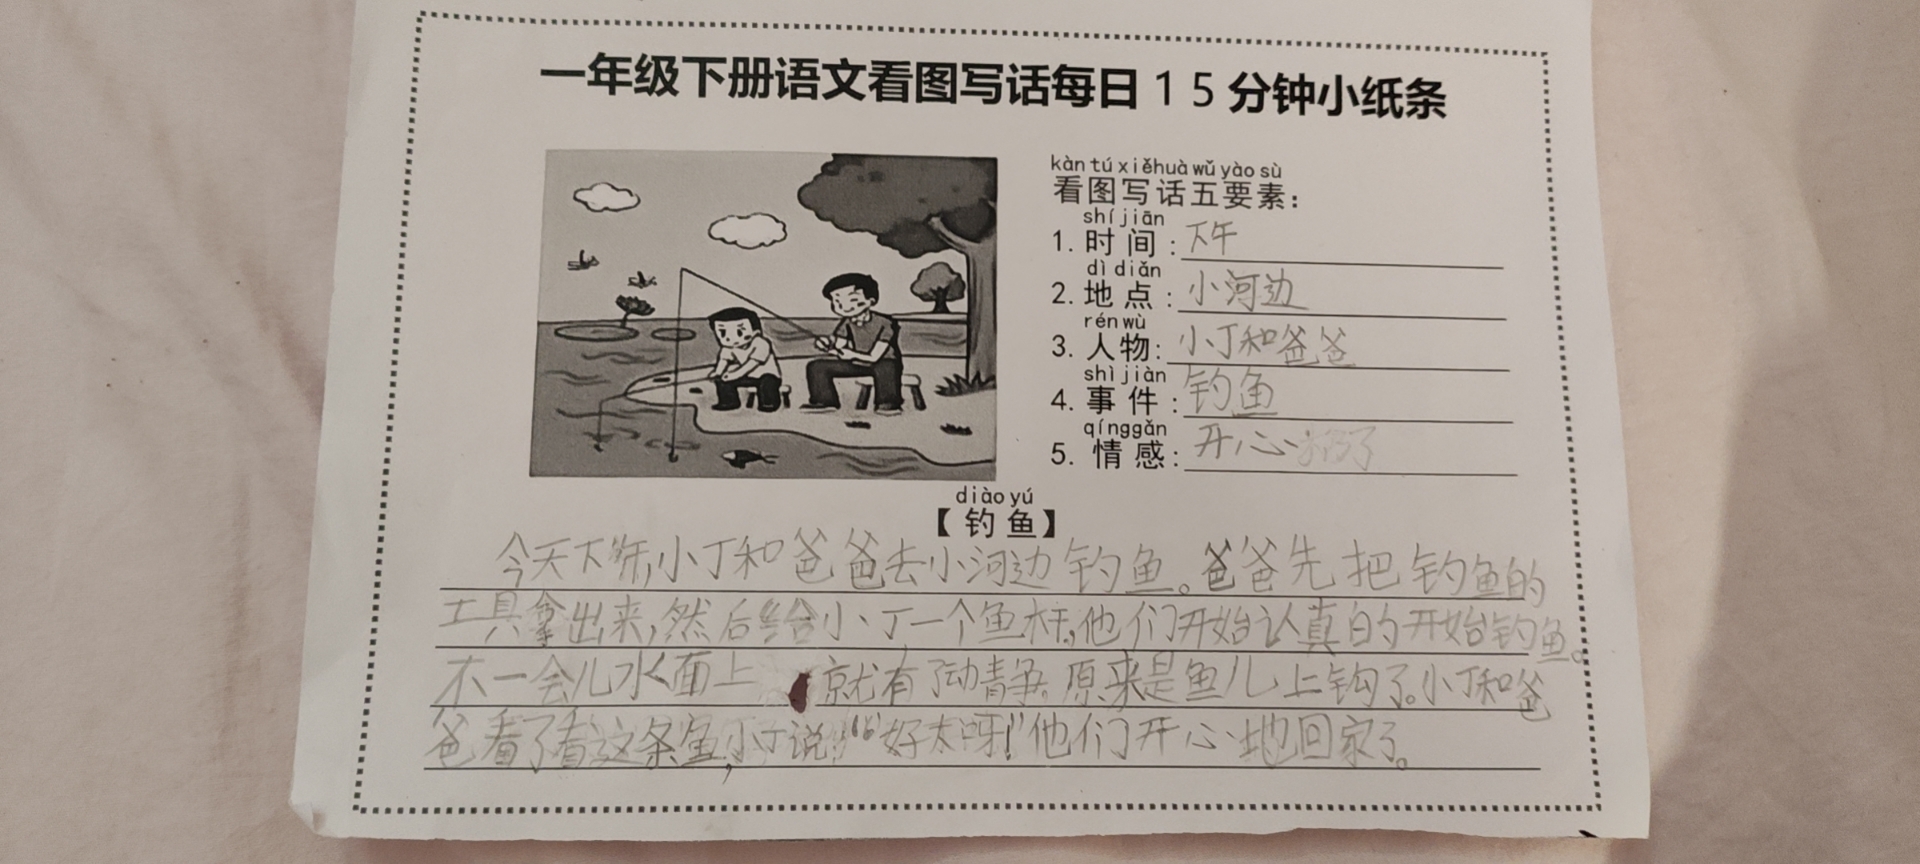 一年级下册语文看图写话每日15分钟小纸条
kàn tú xiěhuà wǔ yào sù
看图写话五要素：
shí jiān
1. 时间：下午
dì diǎn
2. 地点：小河边
rén wù
3. 人物：小丁和爸爸
shì jiàn
4. 事件：钓鱼
qínggǎn
5. 情感：开心
diào yú
【钓鱼】
今天下午,小丁和爸爸去小河边钓鱼。爸爸先把钓鱼的
工具拿出来,然后给小丁一个鱼杆,他们开始认真的开始钓鱼。
不一会儿水面上就有了动静 原来是鱼儿上钩了。小丁和爸
爸看了看这条鱼,小丁说“好大呀!”他们开心地回家了。